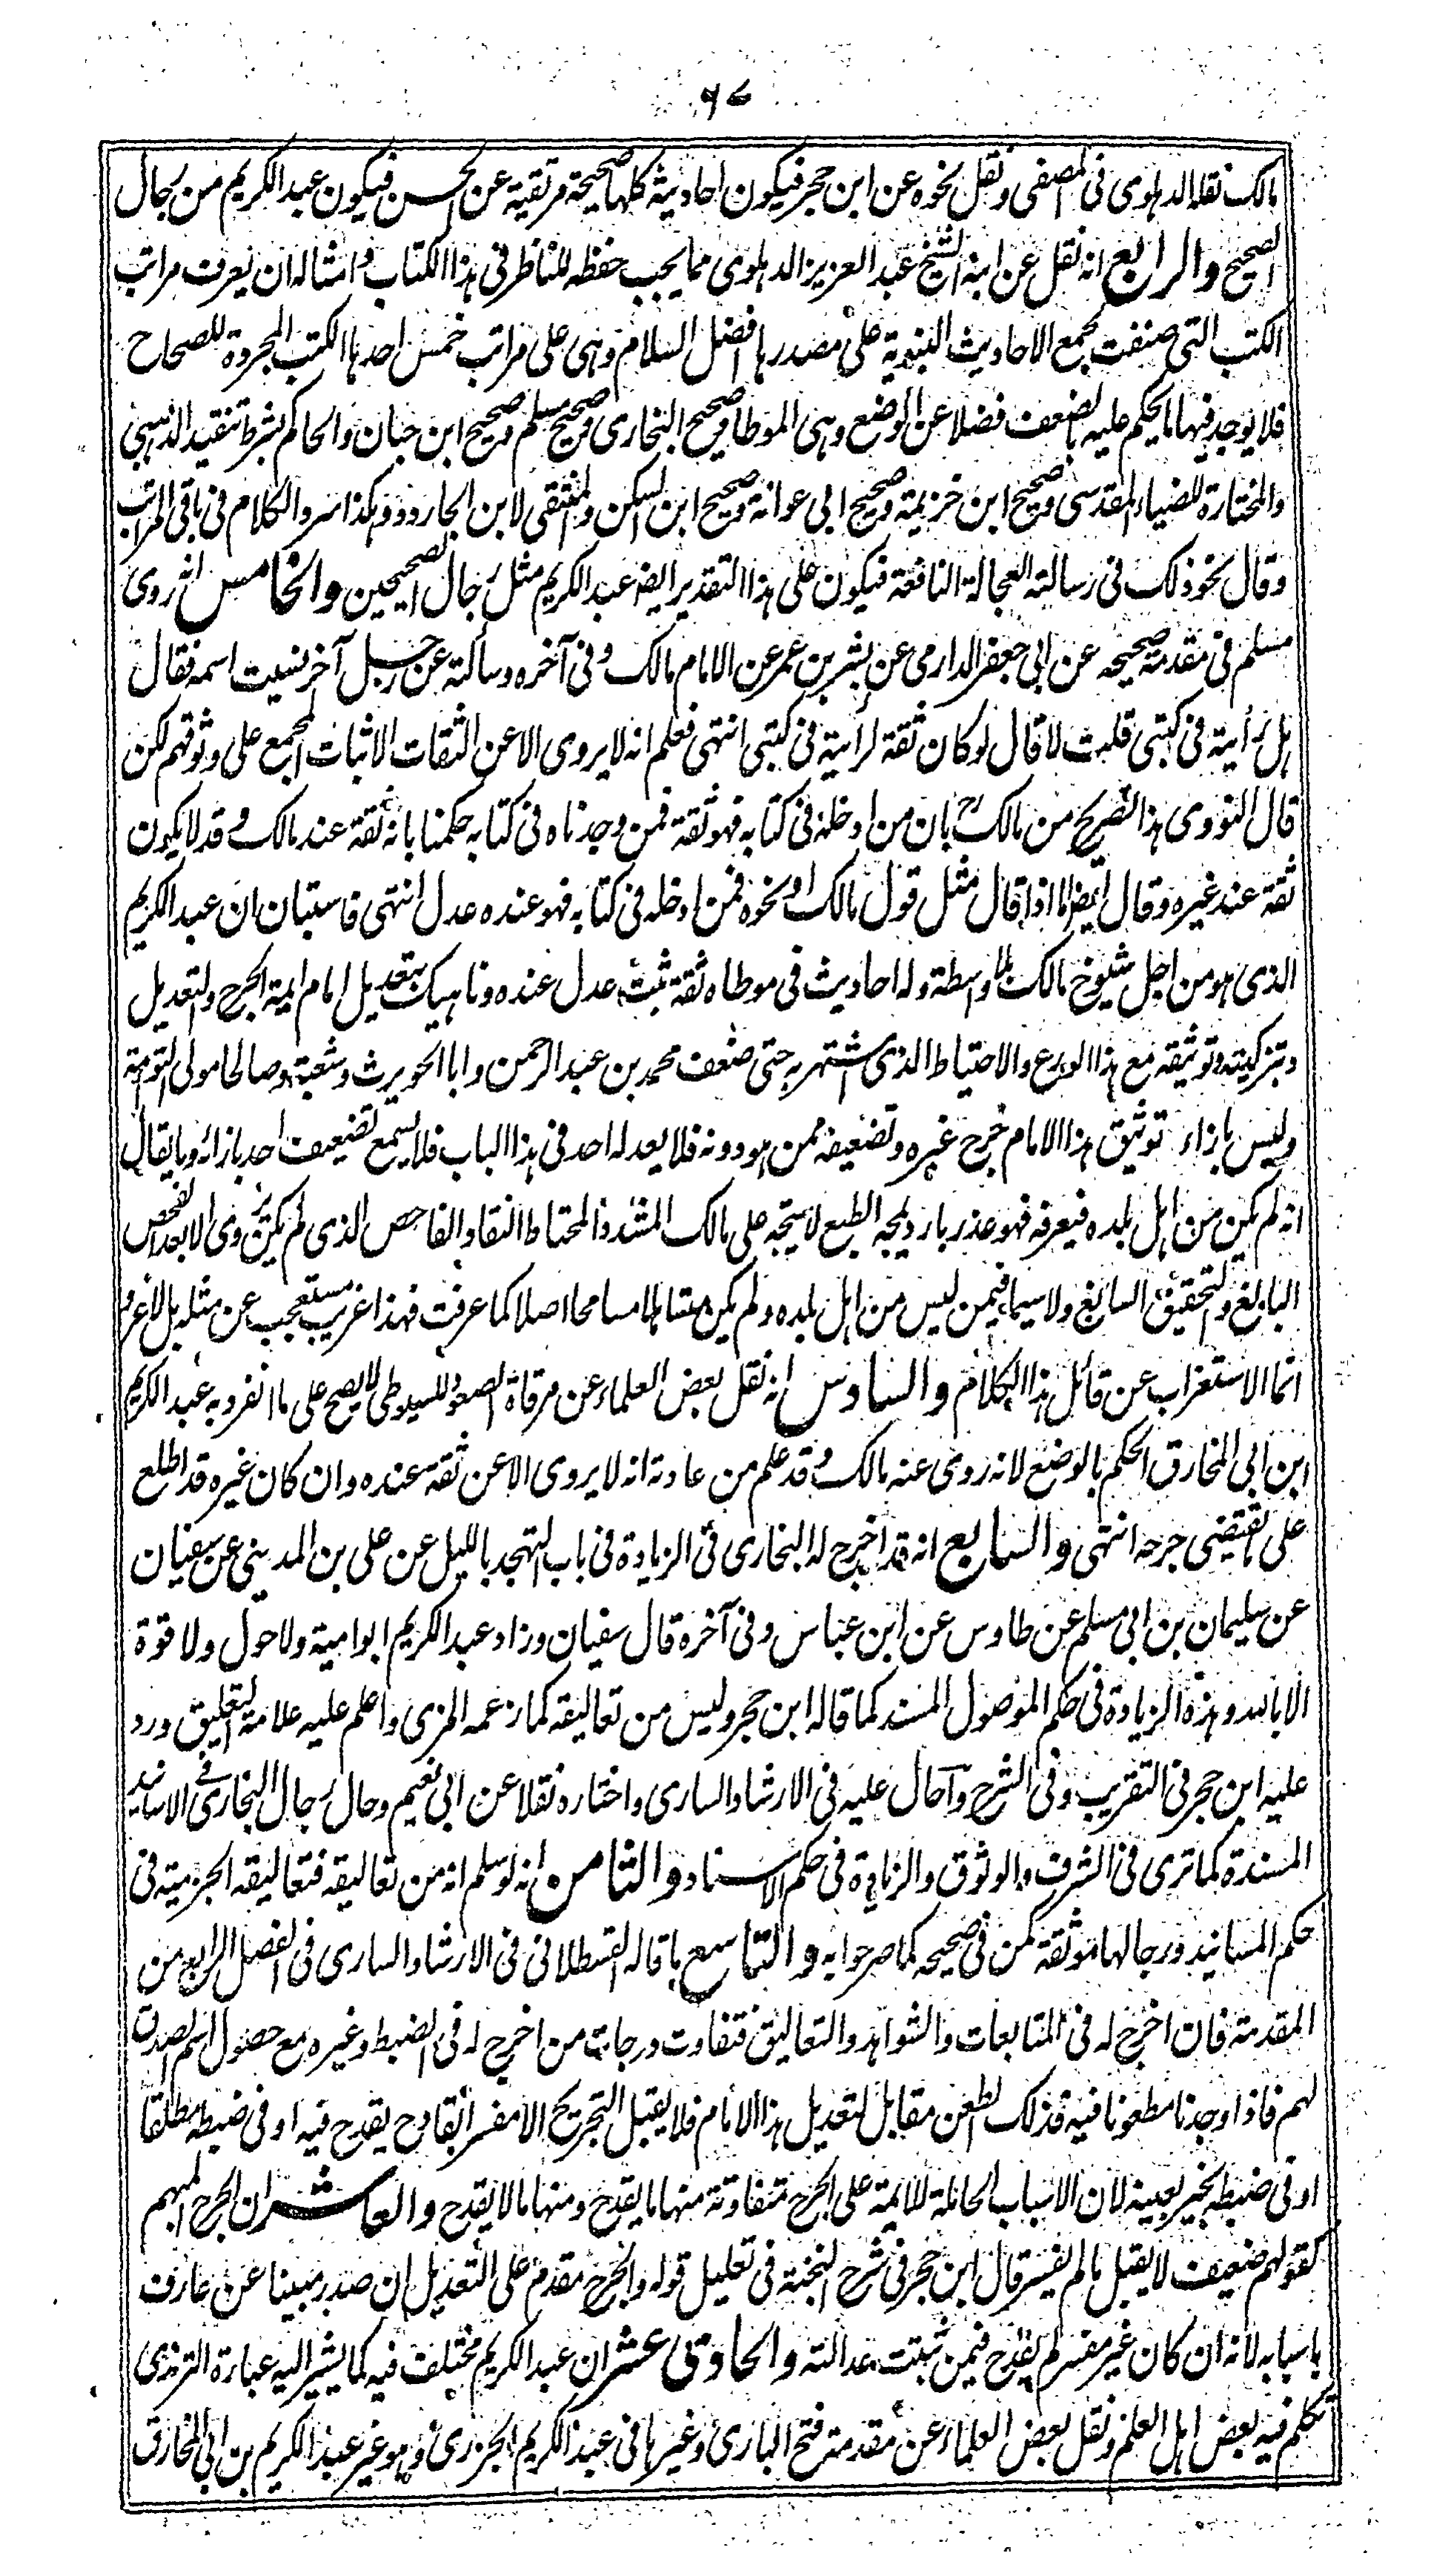 ٩٤
مالك نقله الدهلوى فى المصفى ونقل نحوه عن ابن حجر فيكون احاديثه كلها صحيحة مرتقية عن الحسن فيكون عبد الكريم من رجال
الصحيح والرابع انه نقل عن ابنه الشيخ عبد العزيز الدهلوى مما يجب حفظه للناظر فى هذا الكتاب وامثاله ان يعرف مراتب
الكتب التى صنفت بجمع الاحاديث النبوية على مصدرها افضل السلام وهى على مراتب خمس احدها الكتب المجردة للصحاح
فلا يوجد فيها ما يحكم عليه بالضعف فضلا عن الوضع وهى الموطا وصحيح البخارى وصحيح مسلم وصحيح ابن حبان والحاكم بشرط تنقيد الذهبى
والمختارة للضياء المقدسى وصحيح ابن خزيمة وصحيح ابى عوانة وصحيح ابن السكن والمنتقى لابن الجارود وهكذا سرد الكلام فى باقى المراتب
وقال نحو ذلك فى رسالته العجالة النافعة فيكون على هذا التقدير ايضا عبد الكريم مثل رجال الصحيحين والخامس انه روى
مسلم فى مقدمة صحيحه عن ابى جعفر الدارمى عن بشر بن عمر عن الامام مالك وفى آخره وسألته عن رجل آخر نسيت اسمه فقال
هل رأيته فى كتبى قلت لا قال لو كان ثقة لرأيته فى كتبى انتهى فعلم انه لا يروى الا عن الثقات الاثبات المجمع على وثوقهم لكن
قال النووى هذا تصريح من مالك رح بان من ادخله فى كتابه فهو ثقة فمن وجدناه فى كتابه حكمنا بانه ثقة عند مالك وقد لا يكون
ثقة عند غيره وقال ايضا اما اذا قال مثل قول مالك او نحوه فمن ادخله فى كتابه فهو عنده عدل انتهى فاستبان ان عبد الكريم
الذى هو من اجل شيوخ مالك بلا واسطة وله احاديث فى موطاه ثقة ثبت عدل عنده وناهيك بتعديل امام ايمة الجرح والتعديل
وتزكيته وتوثيقه مع هذا الورع والاحتياط الذى اشتهر به حتى ضعف محمد بن عبد الرحمن وابا الحويرث وشعبة وصالحا مولى التوءمة
وليس بازاء توثيق هذا الامام جرح غيره وتضعيفه ممن هو دونه فلا يعد له احد فى هذا الباب فلا يسمع تضعيف احد بازائه وما يقال
انه لم يكن من اهل بلده فيعرفه فهو عذر بارد يمجه الطبع لا يتجه على مالك المتشدد المحتاط النقاد الفاحص الذى لم يكن يروى الا بعد الفحص
البالغ والتحقيق السابغ ولا سيما فيمن ليس من اهل بلده ولم يكن متساهلا مسامحا اصلا كما عرفت فهذا غريب مستعجب عن مثله بل لا غرو
انما الاستغراب عن قائل هذا الكلام والسادس انه نقل بعض العلماء عن مرقاة الصعود للسيوطى لا يصح على ما انفرد به عبد الكريم
ابن ابى المخارق الحكم بالوضع لانه روى عنه مالك وقد علم من عادته انه لا يروى الا عن ثقة عنده وان كان غيره قد اطلع
على ما يقتضى جرحه انتهى والسابع انه قد اخرج له البخارى فى الزيادة فى باب التهجد بالليل عن على بن المدينى عن سفيان
عن سليمان بن ابى مسلم عن طاوس عن ابن عباس وفى آخره قال سفيان وزاد عبد الكريم ابو امية ولا حول ولا قوة
الا بالله وهذه الزيادة فى حكم الموصول المسند كما قاله ابن حجر وليس من تعاليقه كما زعمه المزى واعلم عليه علامة التعليق ورد
عليه ابن حجر فى التقريب وفى الشرح وآحال عليه فى الارشاد السارى واختاره نقلا عن ابى نعيم وحال رجال البخارى فى الاسانيد
المسندة كما ترى فى الشرف والوثوق والزيادة فى حكم الاسناد والثامن انه لو سلم انه من تعاليقه فتعاليقه الجزمية فى
حكم المسانيد ورجالها موثقة كمن فى صحيحه كما صرحوا به والتاسع ما قاله القسطلانى فى الارشاد السارى فى الفصل الرابع من
المقدمة فان اخرج له فى المتابعات والشواهد والتعاليق فتفاوت درجات من اخرج له فى الضبط وغيره مع حصول اسم الصدق
لهم فاذا وجدنا مطعونا فيه فذلك الطعن مقابل لتعديل هذا الامام فلا يقبل التجريح الا مفسرا بقادح يقدح فيه او فى ضبطه مطلقا
او فى ضبطه لخبر بعينه لان الاسباب الحاملة للايمة على الجرح متفاوتة منها ما يقدح ومنها ما لا يقدح والعاشر ان الجرح المبهم
كقولهم ضعيف لا يقبل ما لم يفسر قال ابن حجر فى شرح النخبة فى تعليل قوله والجرح مقدم على التعديل ان صدر مبينا عن عارف
باسبابه لانه ان كان غير مفسر لم يقدح فيمن ثبتت عدالته والحاوى عشر ان عبد الكريم مختلف فيه كما يشير اليه عبارة الترمذى
تكلم فيه بعض اهل العلم ونقل بعض العلماء عن مقدمة فتح البارى وغيرها فى عبد الكريم الجزرى وهو غير عبد الكريم بن ابى المخارق